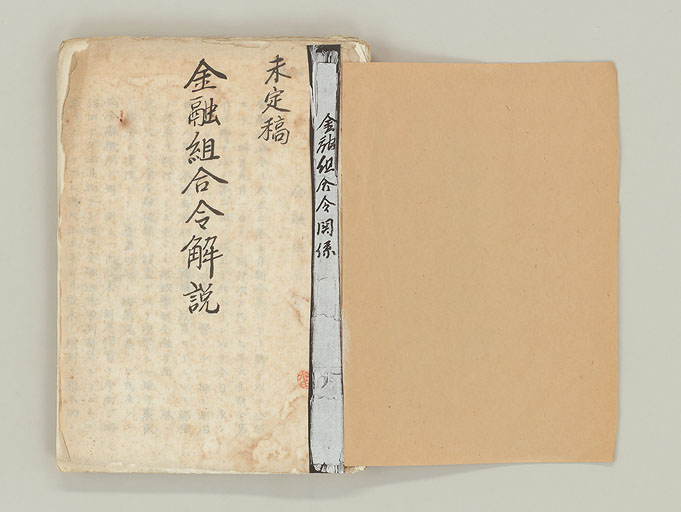 未定稿
金融組合令解説
金融組合令関係